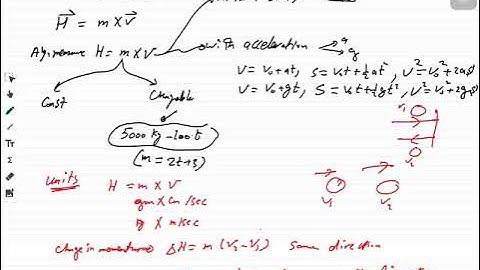 H = m x V
Alg. measure H = m x V with acceleration a
g
V = V₀ + at, S = V₀t + ½at², V² = V₀² + 2as
V = V₀ + gt, S = V₀t + ½gt², V² = V₀² + 2gs
Const Changable
5000 kg - 100t
(m = 2t + 3)
V₁
V₂
units H = m x V
gm x cm/sec
kg x m/sec
V₁ V₂
change in momentum ΔH = m (V₂ - V₁) same direction